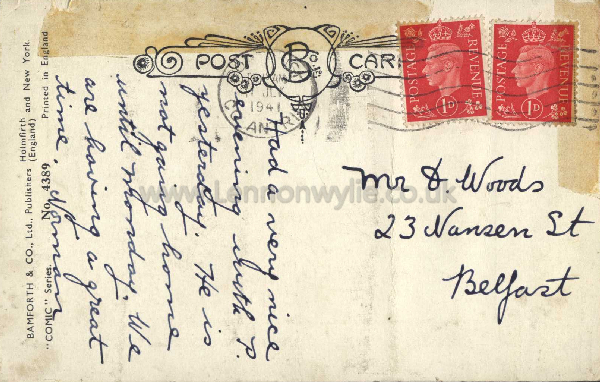 BAMFORTH & CO., Ltd., Publishers Holmfirth and New York
(England)
"COMIC" Series No. 4389 Printed in England
POST CARD
1941
POSTAGE REVENUE
1D
POSTAGE REVENUE
1D
Had a very nice
evening with P.
yesterday. He is
not going home
until Monday. We
are having a great
time. Norman
Mr D Woods
23 Nansen St
Belfast
www.Lennonwylie.co.uk